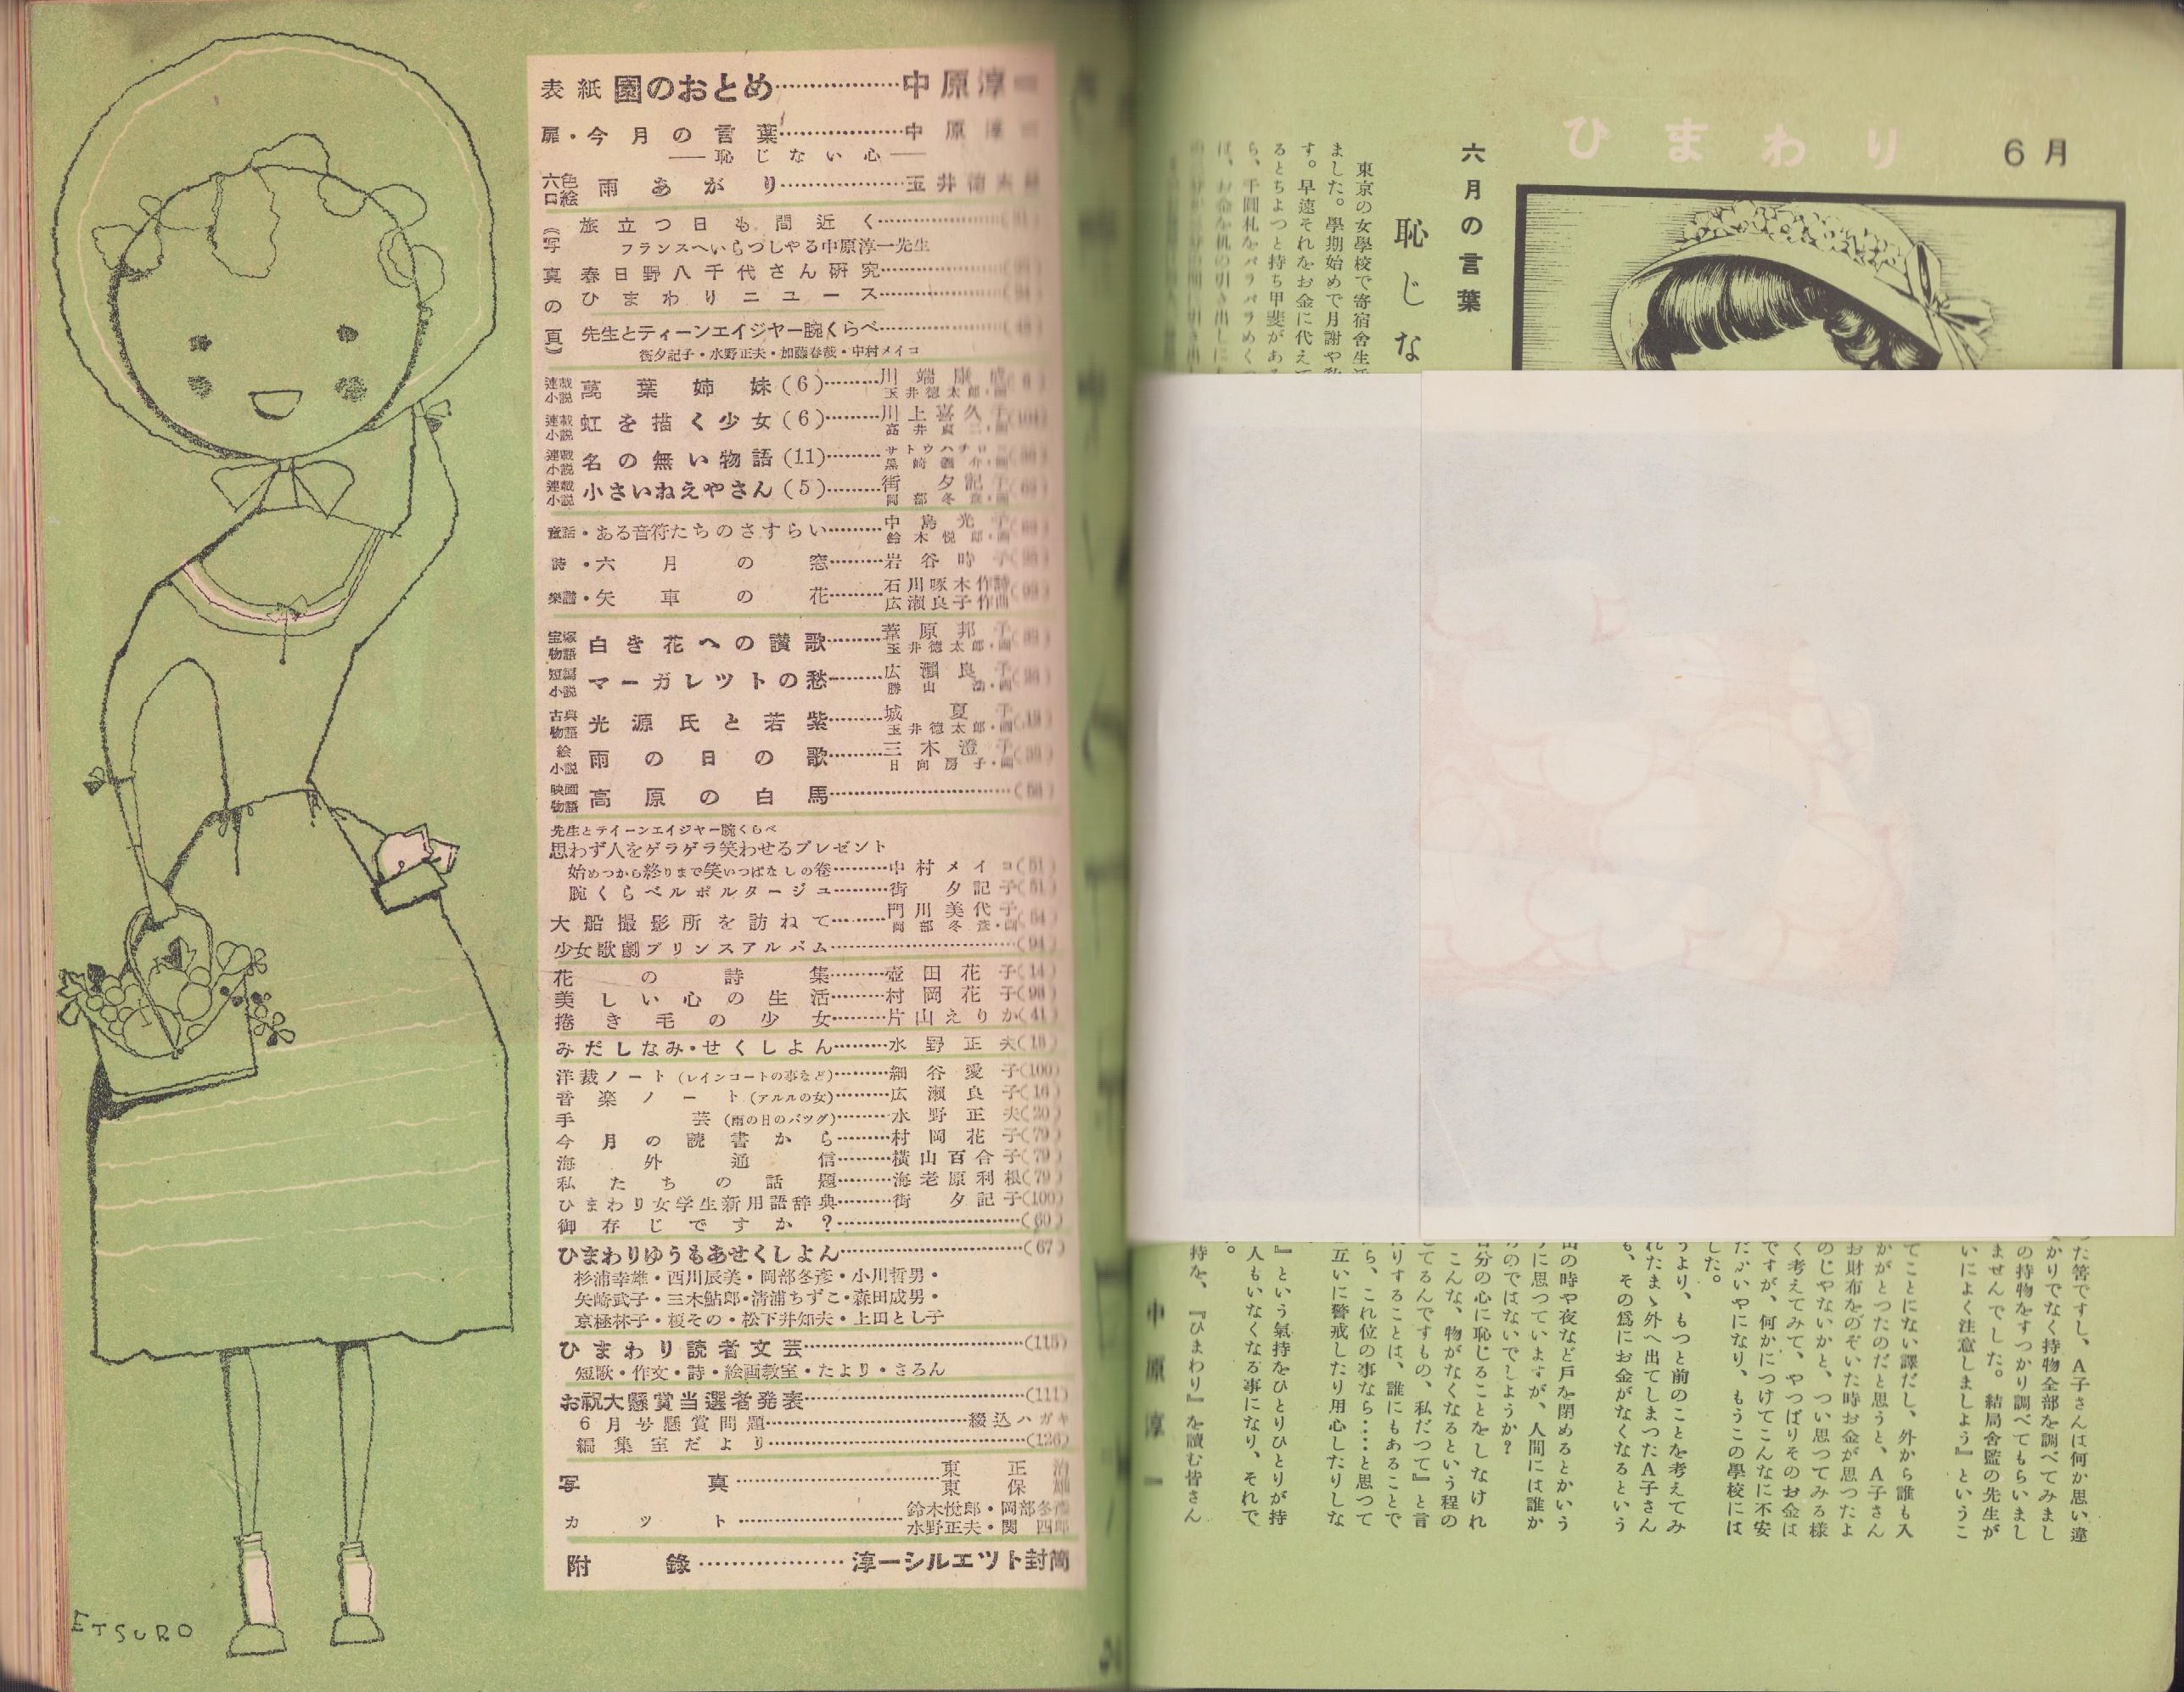 表紙 園のおとめ………………中原淳
扉・今月の言葉………………中原淳
――恥じない心――
六色口絵 雨あがり………………玉井徳太
(写真の頁)
旅立つ日も間近く
フランスへいらつしやる中原淳一先生
春日野八千代さん研究
ひまわりニユース
先生とティーンエイジヤー腕くらべ
街夕記子・水野正夫・加藤春哉・中村メイコ
連載小説 萬葉姉妹(6)………川端康成
玉井徳太郎・画
連載小説 虹を描く少女(6)………川上喜久子
高井貞二・画
連載小説 名の無い物語(11)………サトウハチロー
連載小説 小さいねえやさん(5)………街夕記子
岡部冬彦・画
童話・ある音符たちのさすらい………中島光子
鈴木悦郎・画
詩・六月の窓………岩谷時子
楽譜・矢車の花………石川啄木作詩
広瀬良子作曲
宝塚物語 白き花への讃歌………葦原邦子
玉井徳太郎・画
短編小説 マーガレツトの愁………広瀬良子
勝山
古典物語 光源氏と若紫………城夏子
玉井徳太郎・画
絵小説 雨の日の歌………三木澄子
日向房子・画
映画物語 高原の白馬
先生とテイーンエイジヤー腕くらべ
思わず人をゲラゲラ笑わせるプレゼント
始めつから終りまで笑いつぱなしの巻………中村メイコ(51)
腕くらべルポルタージユ………街夕記子(51)
大船撮影所を訪ねて………門川美代子(54)
岡部冬彦・画
少女歌劇プリンスアルバム………(94)
花の詩集………壺田花子(14)
美しい心の生活………村岡花子(98)
捲き毛の少女………片山えりか(41)
みだしなみ・せくしよん………水野正夫(18)
洋裁ノート(レインコートの事など)………細谷愛子(100)
音楽ノート(アルルの女)………広瀬良子(16)
手芸(雨の日のバツグ)………水野正夫(20)
今月の読書から………村岡花子(79)
海外通信………横山百合子(79)
私たちの話題………海老原利根(79)
ひまわり女学生新用語辞典………街夕記子(100)
御存じですか?………(60)
ひまわりゆうもあせくしよん………(67)
杉浦幸雄・西川辰美・岡部冬彦・小川哲男・
矢崎武子・三木鮎郎・清浦ちずこ・森田成男・
京極林子・榎その・松下井知夫・上田とし子
ひまわり読者文芸………(115)
短歌・作文・詩・絵画教室・たより・さろん
お祝大懸賞当選者発表………(111)
6月号懸賞問題………綴込ハガキ
編集室だより………(126)
写真………東正治
東保雄
カツト………鈴木悦郎・岡部冬彦
水野正夫・関四郎
附錄………淳一シルエツト封筒
ETSURO
ひまわり 6月
六月の言葉
恥じな
東京の女學校で寄宿舍生活
ました。學期始めで月謝や
す。早速それをお金に代えて
るとちよつと持ち甲斐がある
ら、千圓札をパラパラめく
ば、お金を机の引き出しに
つた筈ですし、A子さんは何か思い違
かりでなく持物全部を調べてみまし
の持物をすつかり調べてもらいまし
ませんでした。結局舍監の先生が
いによく注意しましよう』というこ
てことにない譯だし、外から誰も入
かがとつたのだと思うと、A子さん
お財布をのぞいた時お金が思つたよ
のじやないかと、つい思つてみる様
く考えてみて、やつぱりそのお金は
ですが、何かにつけてこんなに不安
だんいやになり、もうこの學校には
した。
うより、もつと前のことを考えてみ
れたまゝ外へ出てしまつたA子さん
も、その爲にお金がなくなるという
出の時や夜など戸を閉めるとかいう
に思つていますが、人間には誰か
のではないでしようか?
自分の心に恥じることをしなけれ
こんな、物がなくなるという程の
してるんですもの、私だつて』と言
たりすることは、誰にもあることで
ら、これ位の事なら……と思つて
互いに警戒したり用心したりしな
』という氣持をひとりひとりが持
人もいなくなる事になり、それで
。
持を、『ひまわり』を讀む皆さん
中原淳一